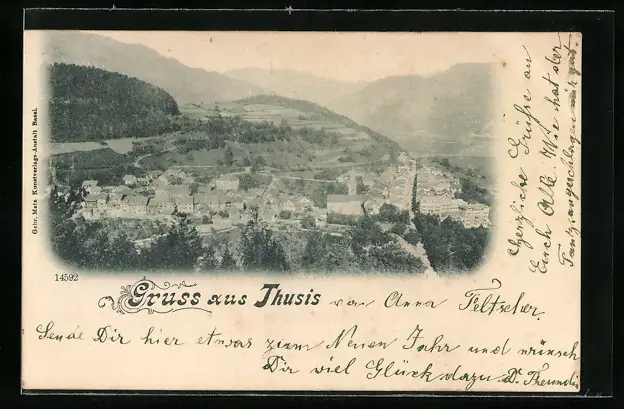 Gebr. Metz Kunstverlags-Anstalt Basel.
14592
Gruss aus Thusis von Anna Feltscher.
Sende Dir hier etwas zum Neuen Jahr und wünsch
Dir viel Glück dazu D. Freundin
Herzliche Grüsse an
Euch Alle Wie hat der
Tanz angeschlagen mir gut.